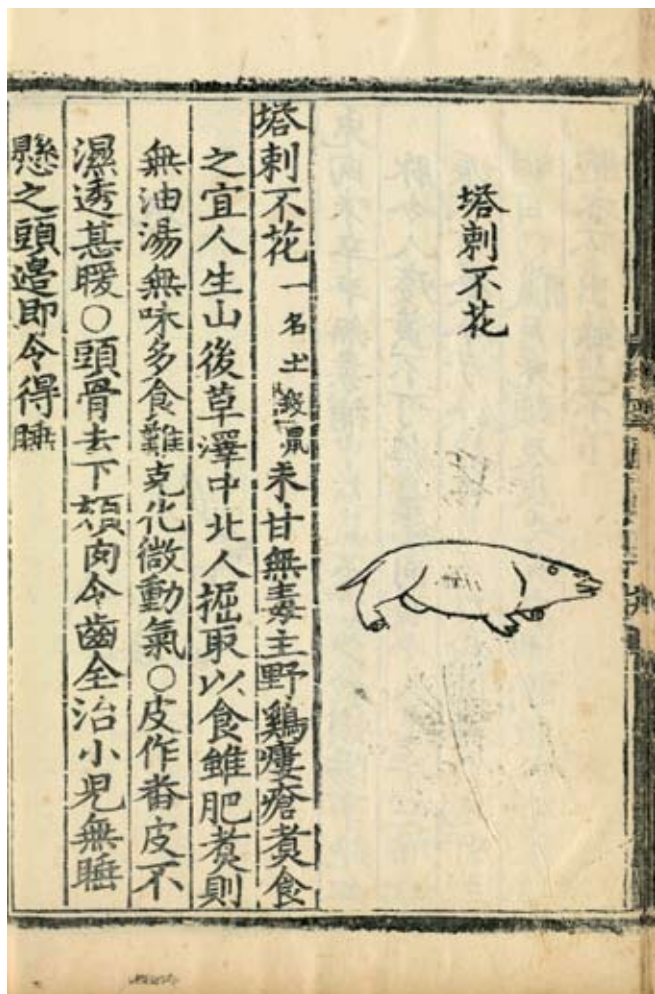 塔剌不花
塔剌不花一名土撥鼠味甘無毒主野鷄瘻瘡煑食
之宜人生山後草澤中北人掘取以食雖肥煑則
無油湯無味多食難克化微動氣○皮作番皮不
濕透甚暖○頭骨去下頦肉令齒全治小兒無睡
懸之頭邉即令得睡